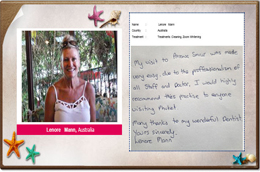 Name : Lenore Mann
Country : Australia
Treatment : Treatments: Cleaning, Zoom Whitening
My visit to Smile was made
very easy, due to the professionalism of
all Staff and Doctor, I would highly
recommend this practise to anyone
visiting Phuket
Many thanks to my wonderful Dentist
Yours sincerely,
Lenore Mann
Lenore Mann, Australia